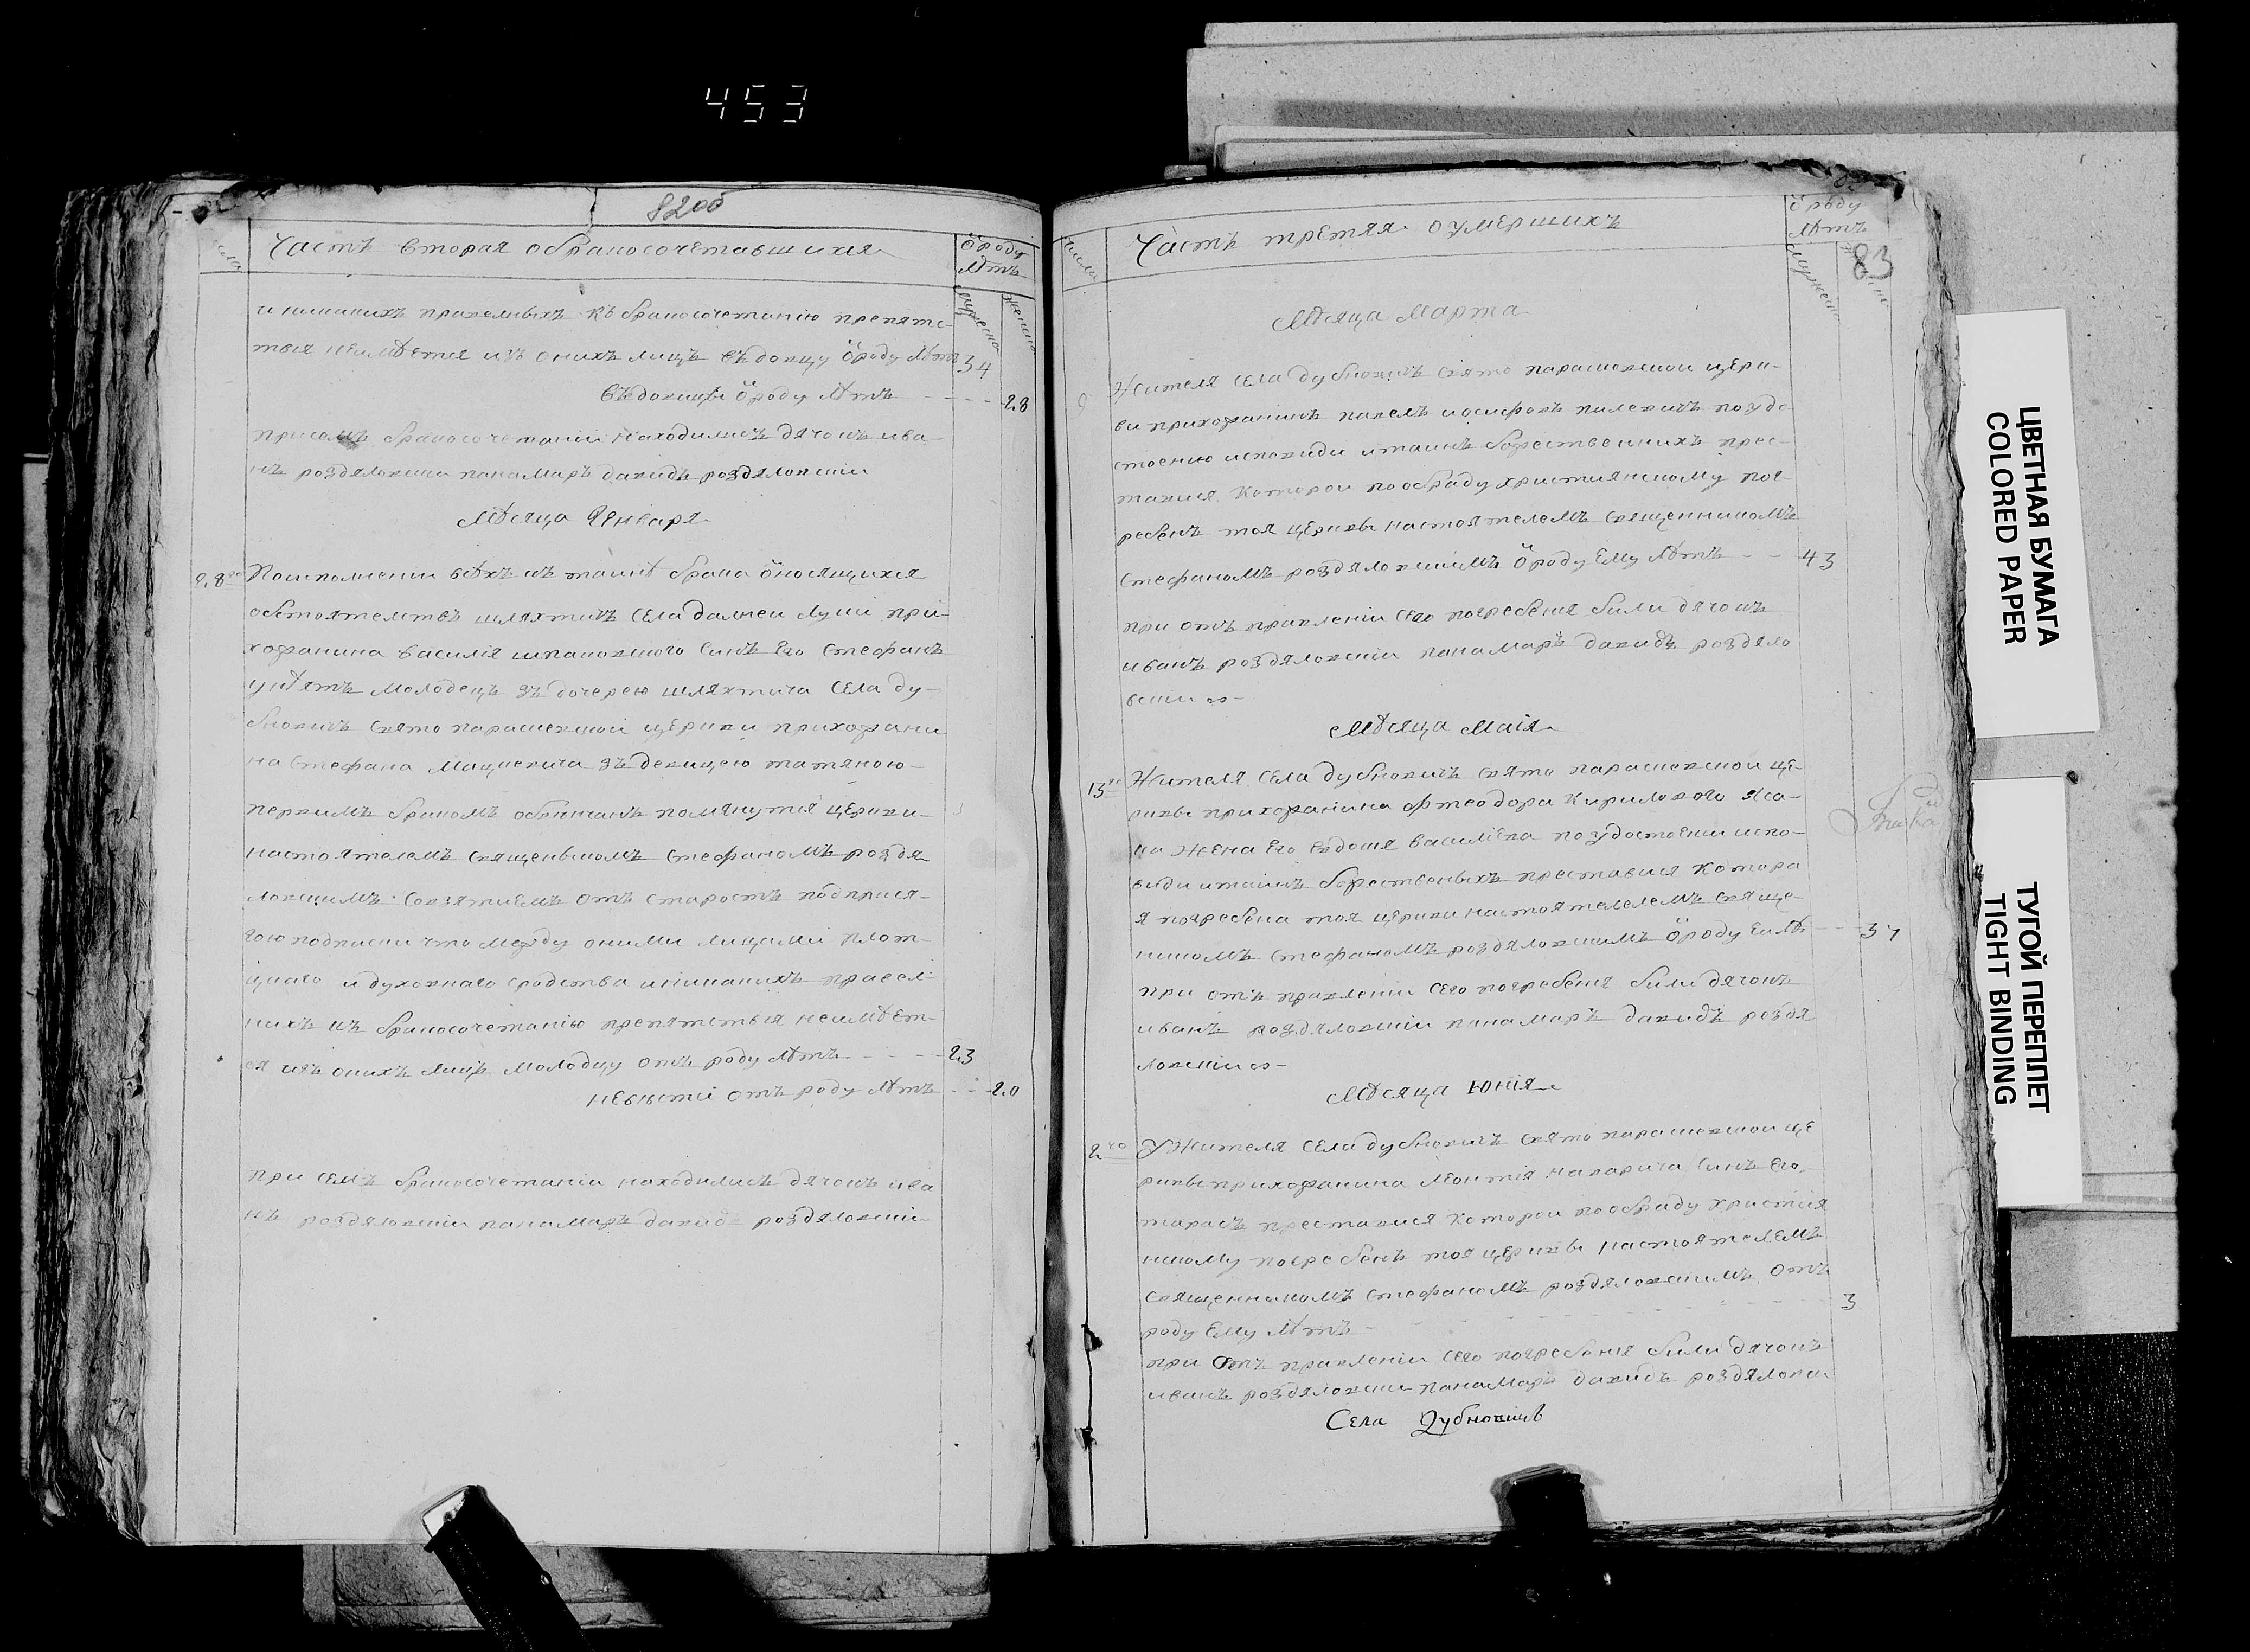 453
82об
Часть вторая обраносочетавшихся
числа
ӧроду
лѣтъ
мужеска
женска
и никанихъ правелныхъ къ браносочетанїю препятс-
твїя неимѣется изъ онихъ лицъ въдовцу ӧроду лѣтъ 34
въдовици ӧроду лѣтъ - - - - 28
присемъ браносочетанїи находились дячокъ ива-
нъ роздяловски панамаръ давидъ роздяловскїи
Мѣсяца Генваря
28го По исполнении всѣхъ къ таинѣ брака ӧносящихся
обстоятелствъ шляхтичъ села далнеи луцї при-
хожанина василїя шпановского синъ его стефанъ
унѣятъ молодецъ зъ дочерею шляхтича села ду-
бновичъ свято парасневской церкви прихожани
на стефана мацневича зъ девицею татяною-
первимъ бракомъ обвинчанъ помянутїя церкви-
настоятелемъ священыкомъ стефаномъ роздя
ловскимъ. совзятиемъ отъ старостъ подприся-
гою подписки что между оними лицами плот-
цкаго и духовнаго сродства и никанихъ правел-
нихъ къ браносочетанїю препятствїя неимѣет-
ся изъ онихъ лицъ молодцу отъ роду лѣтъ - - - - 23
невистї отъ роду лѣтъ - - - 20
при семъ браносочетанїи находились дячокъ ива
нъ роздяловскїи панамаръ давидъ роздяловскїи
Часть третяя оумершихъ
числа
ӧроду
лѣтъ
мужеска
83
Мѣсяца Марта
9 Жителя села дубновичъ свято парасневской церк-
ви прихожанинъ павелъ иосифовъ пилевичъ поудо-
стоенїю исповиди и таинъ божественнихъ прес-
тавися. Которои пообраду християнскому пог-
ребенъ тоя церкви настоятелемъ священникомъ
стефаномъ роздяловскимъ ӧроду ему лѣтъ - - 43
при отъ правленїи сего погребенїя били дячокъ
иванъ роздяловскїи панамаръ давидъ роздяло
вскии
Мѣсяца Маїя
13го Жителя села дубновичъ свято парасневской це-
рквы прихожанина фтеодора кирилового жа-
на жена его евдокїя василїева поудостоенїи испо-
види и таинъ божественыхъ преставися котора
я погребена тоя церкви настоятелелемъ свяще-
никомъ стефаномъ роздяловскимъ ӧроду еи лѣ - - 37
при отъ правленїи сего погребенїя били дячокъ
иванъ роздяловскїи панамаръ давидъ роздя
ловскїи
Мѣсяца Юнїя
2го У Жителя села дубновичъ свято парасневской це
рквы прихожанина леонтїя назарича синъ его,
тарасъ преставися которои пообраду християя
нскому погребенъ тоя церквы настоятелемъ
священникомъ стефаномъ роздяловскимъ отъ
роду ему лѣтъ - - - - 3
при отъ правленїи сего погребенїя били дячокъ
иванъ роздяловски панамаръ давидъ роздяловски
Села Дубновичъ
ЦВЕТНАЯ БУМАГА
COLORED PAPER
ТУГОЙ ПЕРЕПЛЕТ
TIGHT BINDING